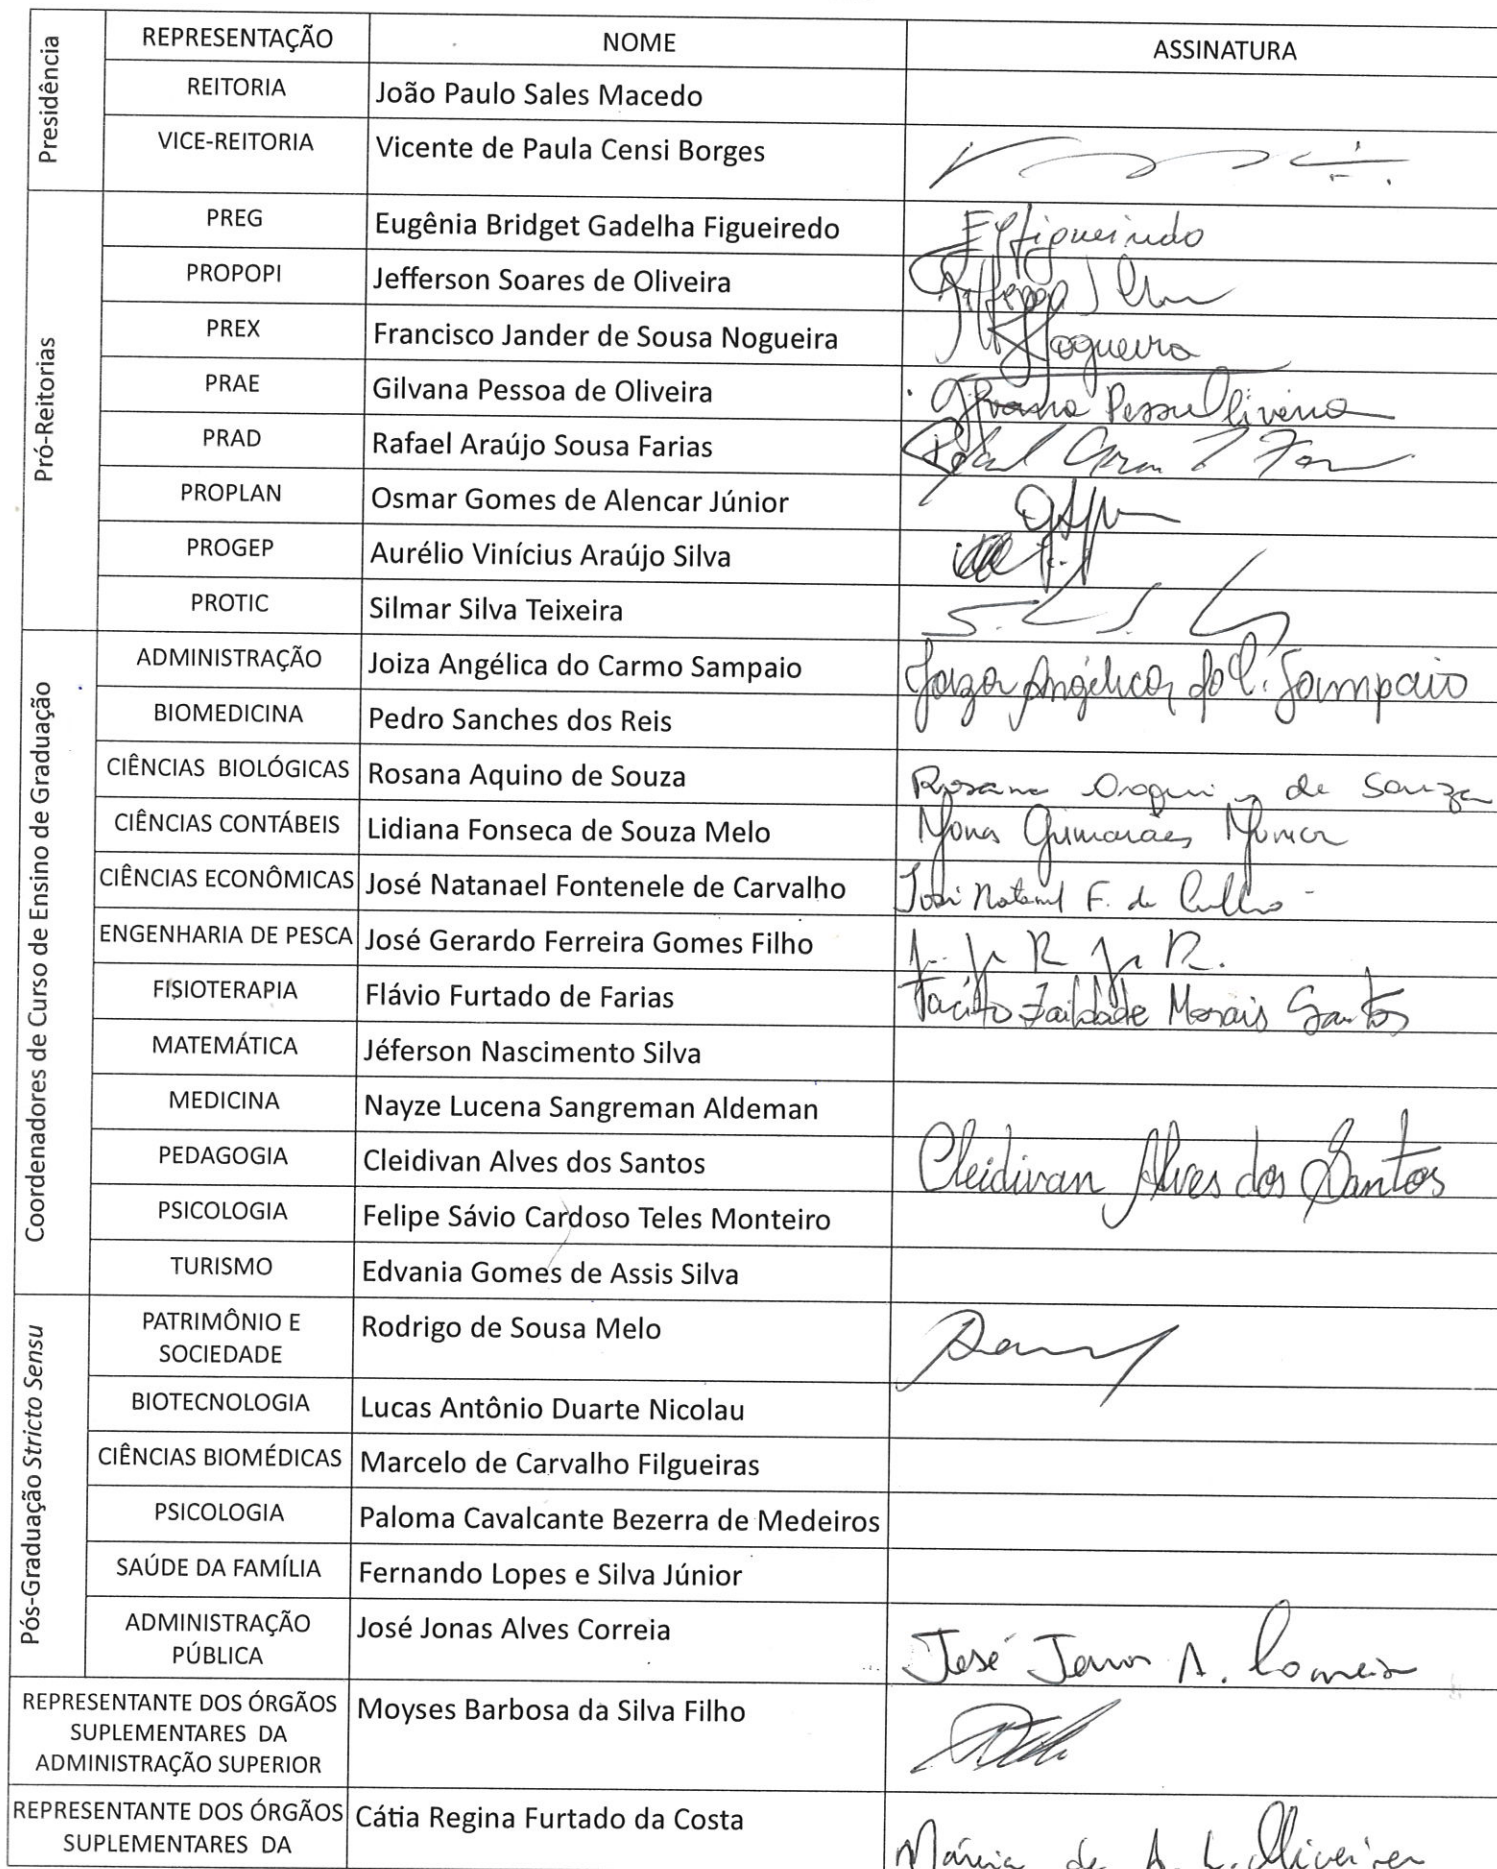 REPRESENTAÇÃO NOME ASSINATURA
Presidência
REITORIA João Paulo Sales Macedo
VICE-REITORIA Vicente de Paula Censi Borges
Pró-Reitorias
PREG Eugênia Bridget Gadelha Figueiredo Figueiredo
PROPOPI Jefferson Soares de Oliveira
PREX Francisco Jander de Sousa Nogueira Nogueira
PRAE Gilvana Pessoa de Oliveira Gilvana Pessoa Oliveira
PRAD Rafael Araújo Sousa Farias
PROPLAN Osmar Gomes de Alencar Júnior
PROGEP Aurélio Vinícius Araújo Silva
PROTIC Silmar Silva Teixeira
Coordenadores de Curso de Ensino de Graduação
ADMINISTRAÇÃO Joiza Angélica do Carmo Sampaio Joiza Angélica do C. Sampaio
BIOMEDICINA Pedro Sanches dos Reis
CIÊNCIAS BIOLÓGICAS Rosana Aquino de Souza Rosana Aquino de Souza
CIÊNCIAS CONTÁBEIS Lidiana Fonseca de Souza Melo Guimarães
CIÊNCIAS ECONÔMICAS José Natanael Fontenele de Carvalho José Natanael F. de Carvalho
ENGENHARIA DE PESCA José Gerardo Ferreira Gomes Filho
FISIOTERAPIA Flávio Furtado de Farias Morais Santos
MATEMÁTICA Jéferson Nascimento Silva
MEDICINA Nayze Lucena Sangreman Aldeman
PEDAGOGIA Cleidivan Alves dos Santos Cleidivan Alves dos Santos
PSICOLOGIA Felipe Sávio Cardoso Teles Monteiro
TURISMO Edvania Gomes de Assis Silva
Pós-Graduação Stricto Sensu
PATRIMÔNIO E Rodrigo de Sousa Melo
SOCIEDADE
BIOTECNOLOGIA Lucas Antônio Duarte Nicolau
CIÊNCIAS BIOMÉDICAS Marcelo de Carvalho Filgueiras
PSICOLOGIA Paloma Cavalcante Bezerra de Medeiros
SAÚDE DA FAMÍLIA Fernando Lopes e Silva Júnior
ADMINISTRAÇÃO José Jonas Alves Correia José Jonas A. Correia
PÚBLICA
REPRESENTANTE DOS ÓRGÃOS Moyses Barbosa da Silva Filho
SUPLEMENTARES DA
ADMINISTRAÇÃO SUPERIOR
REPRESENTANTE DOS ÓRGÃOS Cátia Regina Furtado da Costa
SUPLEMENTARES DA Márcia de A. L. Oliveira